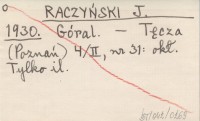 RACZYŃSKI J.
1930. Góral. — Tęcza
(Poznań) 4/II, nr 31: okł.
Tylko il.